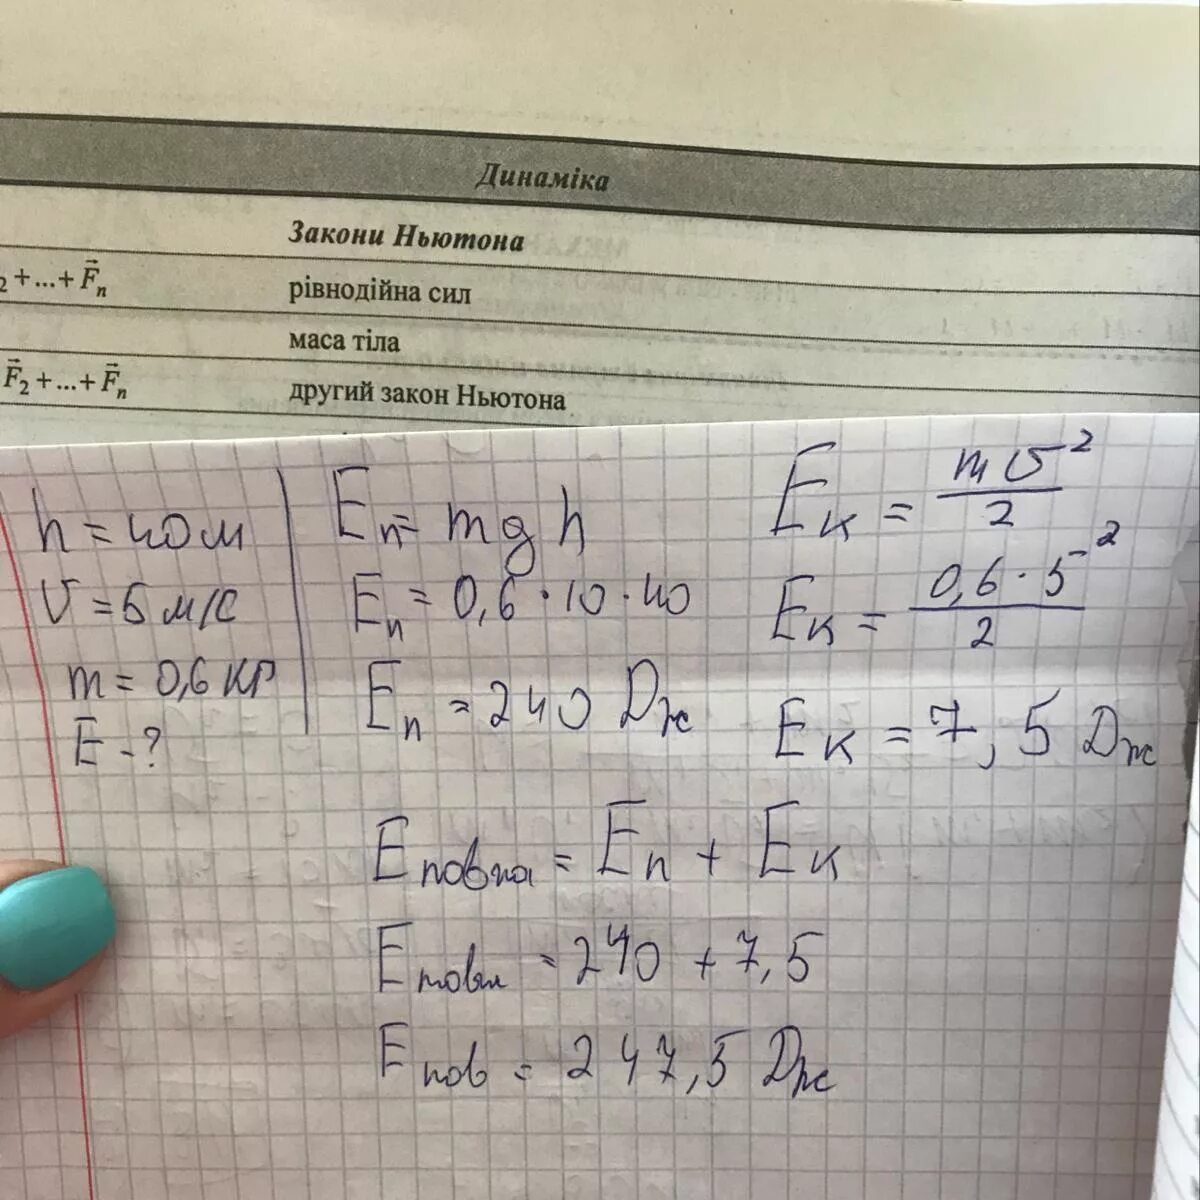 Динаміка
Закони Ньютона
₂ +...+ F⃗ₙ рівнодійна сил
маса тіла
F⃗₂ +...+ F⃗ₙ другий закон Ньютона
h = 40 м
υ = 5 м/с
m = 0,6 кг
E - ?
Eп = mgh
Eп = 0,6 · 10 · 40
Eп = 240 Дж
Eк = mυ²/2
Eк = 0,6 · 5²/2
Eк = 7,5 Дж
Eповна = Eп + Eк
Eповн = 240 + 7,5
Eпов = 247,5 Дж